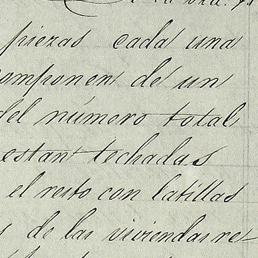 piezas cada una
componen de un
del número total
estan techadas
el resto con latillas
s de las viviendas re-